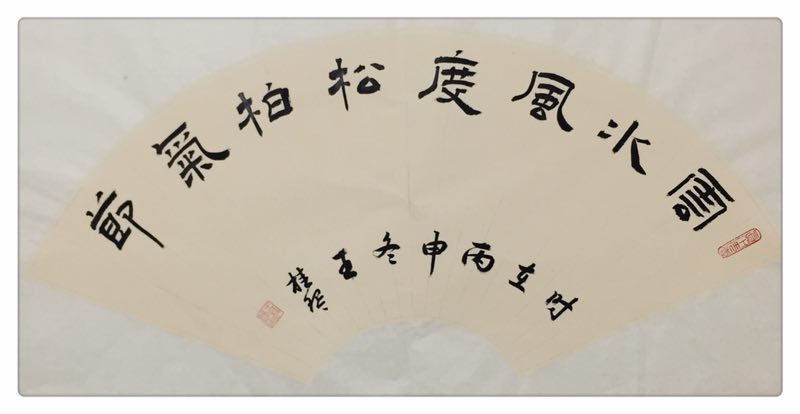 雲水風度松柏氣節
时在丙申冬王桂